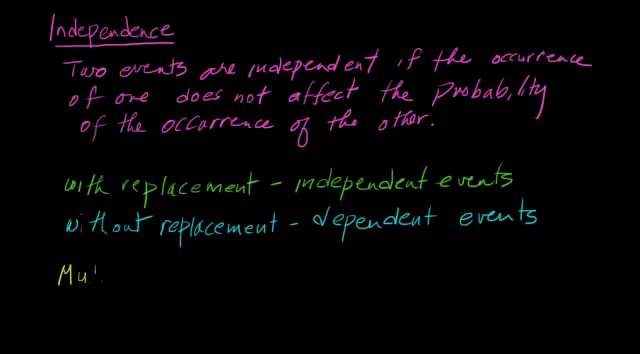 Independence
Two events are independent if the occurrence
of one does not affect the Probability
of the occurrence of the other.
with replacement - independent events
without replacement - dependent events
Mul